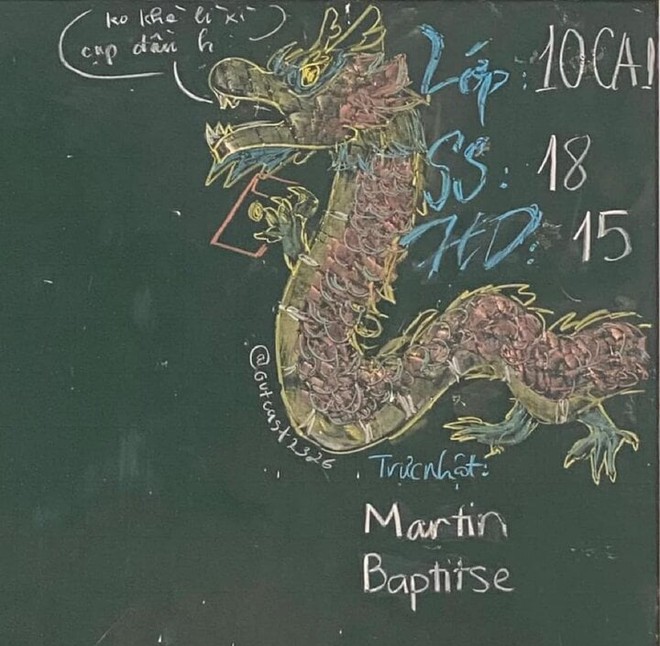 ko khè lì xì
cạp đầu h
Lớp: 10CA1
SS: 18
HD: 15
@Outcast2326
Trực nhật:
Martin
Baptitse